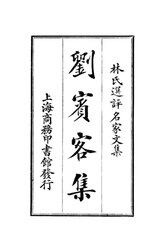 林氏選評名家文集
劉賓客集
上海商務印書館發行